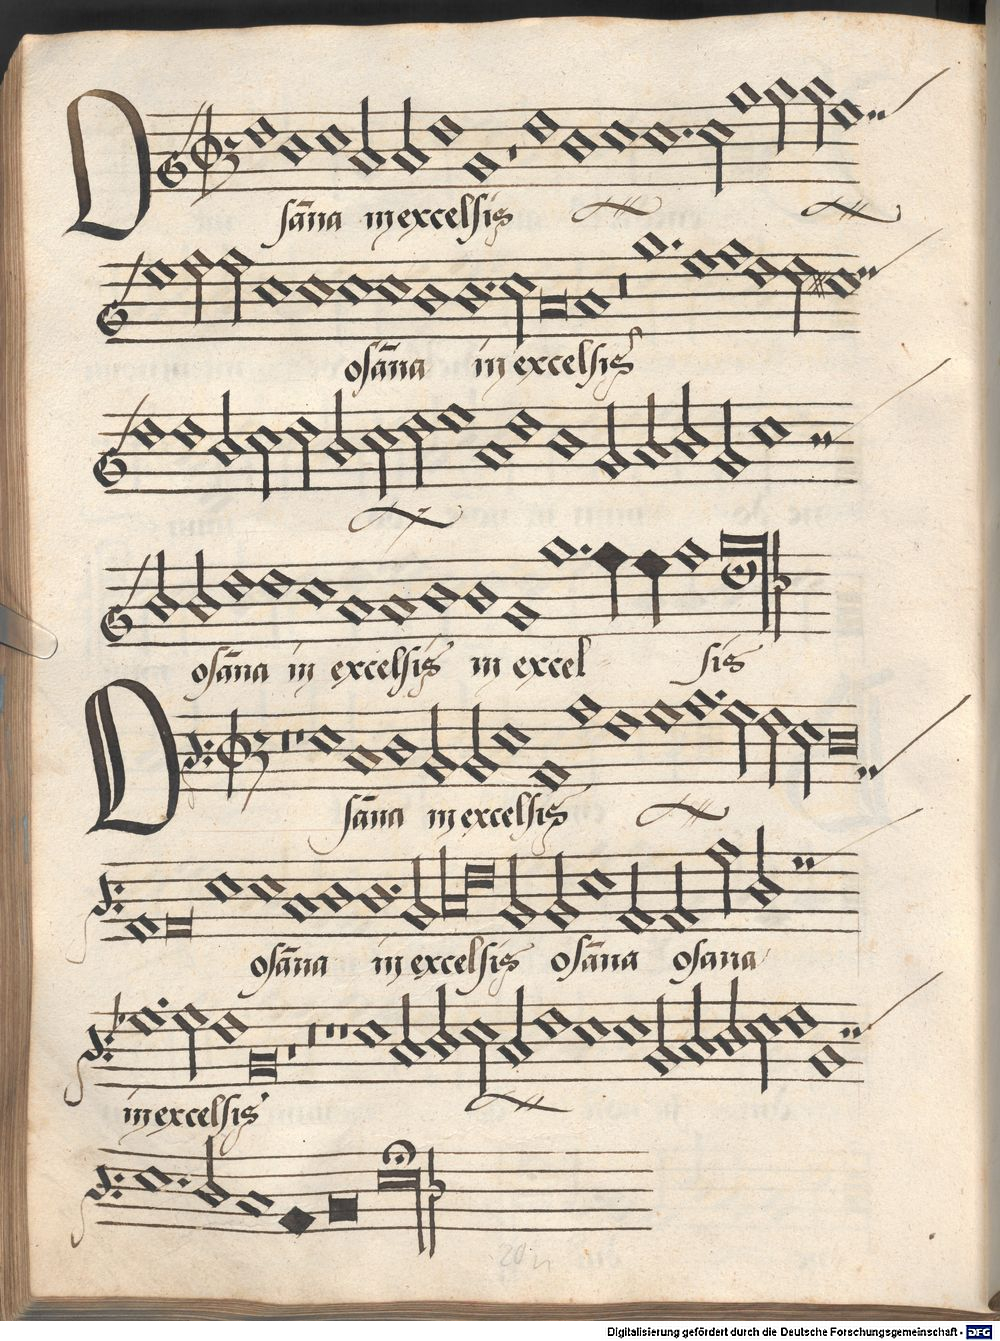 Osāna in excelsis
osāna in excelsis
osāna in excelsis in excel sis
Osāna in excelsis
osāna in excelsis osāna osana
in excelsis
Digitalisierung gefördert durch die Deutsche Forschungsgemeinschaft - DFG